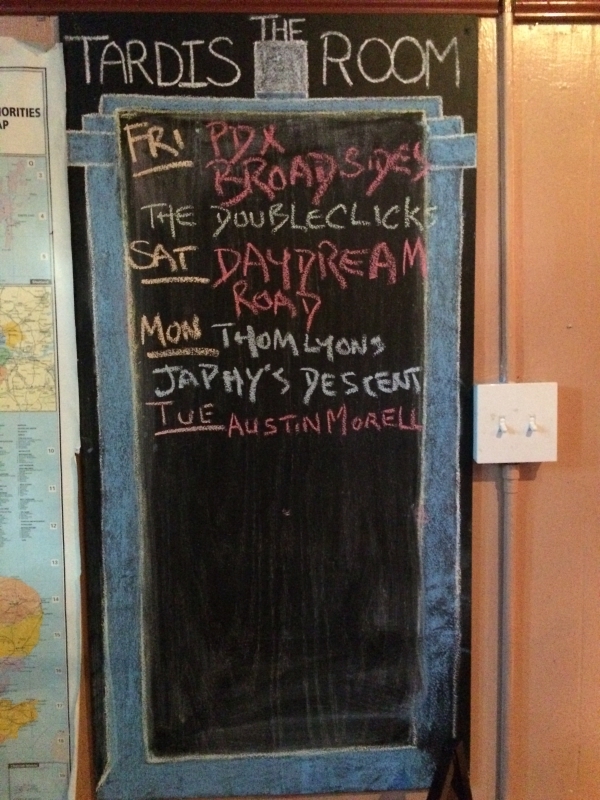 THE
TARDIS ROOM
FRI PDX
BROADSIDES
THE DOUBLECLICKS
SAT DAYDREAM
ROAD
MON THOM LYONS
JAPHY'S DESCENT
TUE AUSTIN MORELL
ORITIES
AP